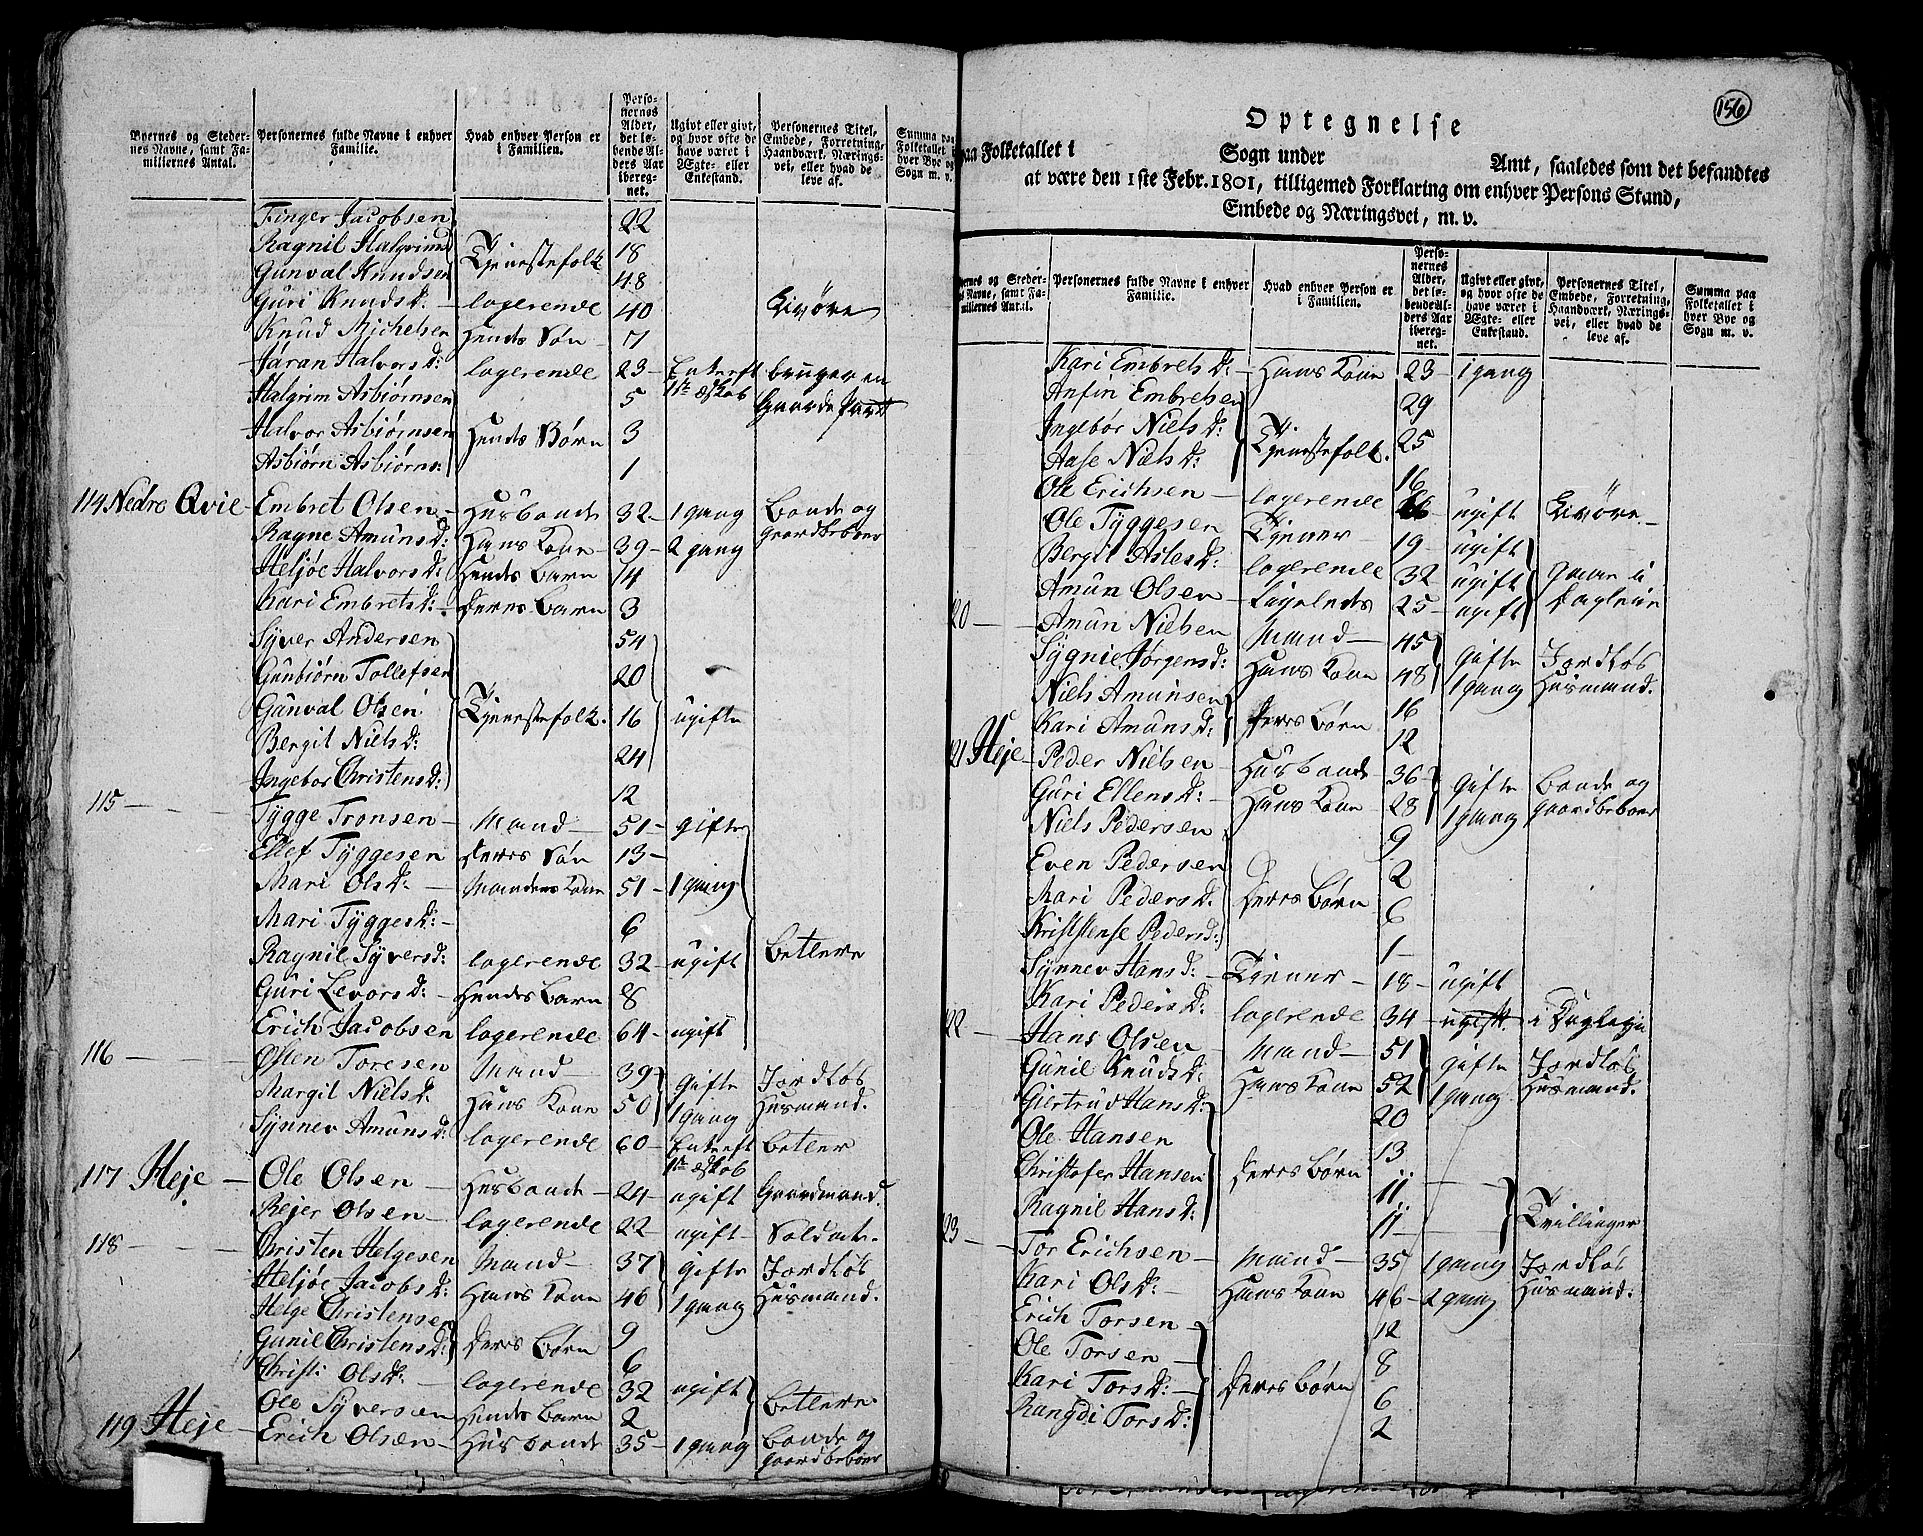 Byernes og Steder-
nes Navne, samt Fa-
miliernes Antal.
Personernes fulde Navne i enhver
Familie.
Hvad enhver Person er
i Familien.
Perso-
nernes
Alder,
det lø-
bende Al-
ders Aar
ibereg-
net.
Ugivt eller givt,
og hvor ofte de
have været i
Ægte- eller
Enkestand.
Personernes Titel,
Embede, Forretning,
Haandværk, Nærings-
vei, eller hvad de
leve af.
Summa paa
Folketallet i
hver Bye og
Sogn m. v.
Finger Jacobsen 22
Ragnil Halgrimd 18
Tjenestefolk
Gunval Knudsen 48
Guri Knudsd: – logerende 40
Knud Michelsen Hendes Søn – 7
Jaran Halvorsd: logerende 23 – Enke eft 1ste Ægtskab bruger en Gaarde Part
Halgrim Asbiørnsen 5
Halvor Asbiørnsen Hendes Børn 3
Asbiørn Asbiørns: 1
114 Nedre Qvie – Embret Olsen – Husbonde 32 – 1 gang Bonde og Gaardbeboer
Ragne Amunsd: Hans Kone – 39 – 2 gang
Heljøe Halvorsd: Hendes Barn 14
Kari Embretsd: – Deres Barn 3
Syver Andersen 54
Gunbiørn Tollefsen 20
Gunval Olsen Tjenestefolk. 16 ugifte
Bergit Nielsd: 24
Ingebor Christensd: 12
115 – Tygge Tronsen – Mand – 51 – gifte
Ellef Tyggesen Deres Søn 13 –
Mari Olsd: – Mandens Kone 51 – 1 gang
Mari Tyggesd: – 6
Ragnil Syversd: logerende 32 – ugift Betlere
Guri Levorsd: – Hendes Barn 8
Erich Jacobsen logerende 64 – ugift
116 – Østen Toresen Mand – 39 Gifte Jordløs
Margit Nielsd: Hans Kone 50 1 gang Husmand.
Synnev Amunsd: logerende 60 – Enke eft 1ste Ægtskab Betler
117 Heje – Ole Olsen – Husbonde – 24 – ugift Gaardmand.
Rejer Olsen – logerende 22 – ugift – Soldat.
118 – Christen Helgesen Mand – 37 Gifte Jordløs
Heljøe Jacobsd: Hans Kone 46 1 gang Husmand.
Helge Christensen 9
Gunil Christensd: Deres Børn 6
Christi Olsd: – logerende 32 ugift Betlere
Ole Syversen Hendes Barn 2
119 Heje – Erich Olsen – Husbonde 35 – 1 gang Bonde og Gaardbeboer
156
Optegnelse
paa Folketallet i Sogn under Amt, saaledes som det befandtes
at være den 1ste Febr. 1801, tilligemed Forklaring om enhver Persons Stand,
Embede og Næringsvei, m. v.
Byernes og Steder-
nes Navne, samt Fa-
miliernes Antal.
Personernes fulde Navne i enhver
Familie.
Hvad enhver Person er
i Familien.
Perso-
nernes
Alder,
det lø-
bende Al-
ders Aar
ibereg-
net.
Ugivt eller givt,
og hvor ofte de
have været i
Ægte- eller
Enkestand.
Personernes Titel,
Embede, Forretning,
Haandværk, Nærings-
vei, eller hvad de
leve af.
Summa paa
Folketallet i
hver Bye og
Sogn m. v.
Kari Embretsd: – Hans Kone 23 – 1 gang
Anfin Embretsen 29
Ingebor Nielsd: Tjenestefolk. 25
Aase Nielsd: 16
Ole Erichsen – logerende ugift
Ole Tyggesen Tjener – 19 – ugift
Bergit Aslesd: logerende 32 ugift gaar i
Amun Olsen – Ligeledes 25 – ugift Dagleie
20 – Amun Nielsen Mand – 45 gifte Jordløs
Sygnie Jørgensd: Hans Kone 48 1 gang Husmand.
Niels Amunsen 16
Kari Amunsd: Deres Børn 12
21 Heje – Peder Nielsen – Husbonde 36 – Gifte Bonde og
Guri Ellensd: – Hans Kone – 28 1 gang Gaardbeboer
Niels Pedersen 9
Even Pedersen 2
Mari Pedersd: Deres Børn 6
Kriststense Pedersd: 1 –
Synnev Hansd: – Tjener – 18 – ugift
Kari Pedersd: logerende 34 – ugift i Dagleje
22 – Hans Olsen – Mand – 51 gifte Jordløs
Gunil Knudsd: Hans Kone 52 1 gang Husmand.
Giertrud Hansd: 20
Ole Hansen 13
Christofer Hansen Deres Børn 11
Ragnil Hansd: 11 – Tvillinger
23 – Tor Erichsen – Mand – 35 1 gang Jordløs
Kari Olsd: – Hans Kone 46 – 2 gang Husmand:
Erich Torsen – 12
Ole Torsen – 8
Kari Torsd: – Deres Børn 6
Rangdi Torsd: 2